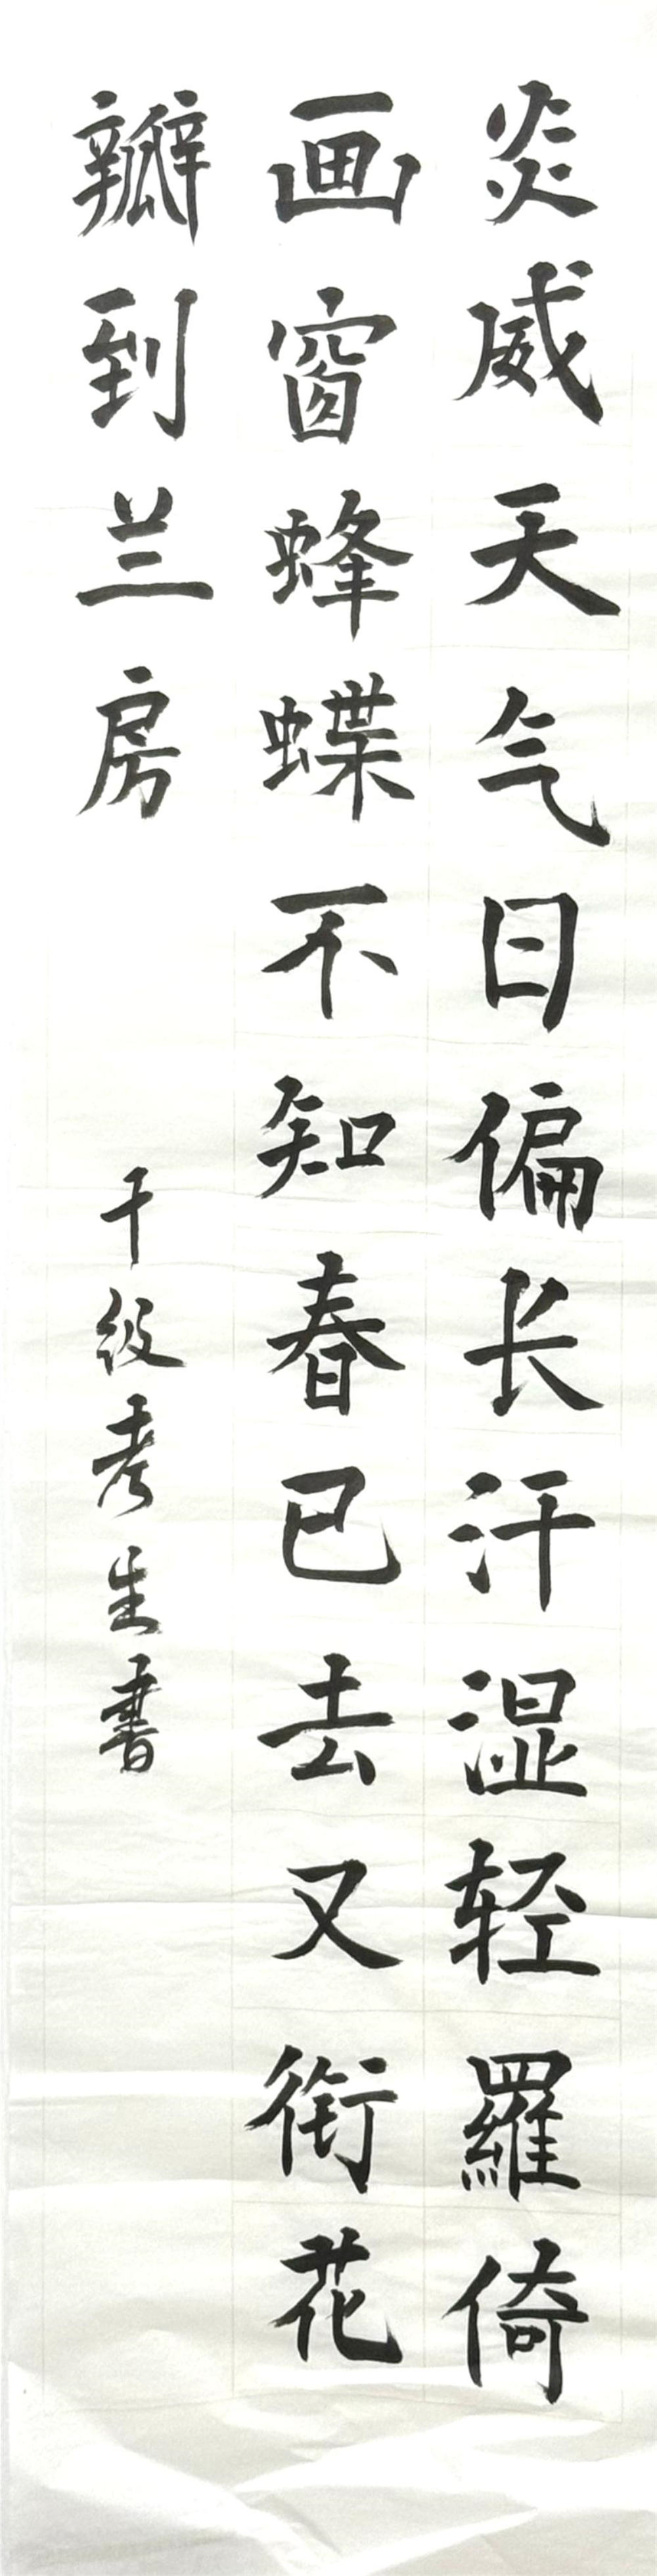 炎威天气日偏长汗湿轻羅倚
画窗蜂蝶不知春已去又衔花
瓣到兰房
十级考生书